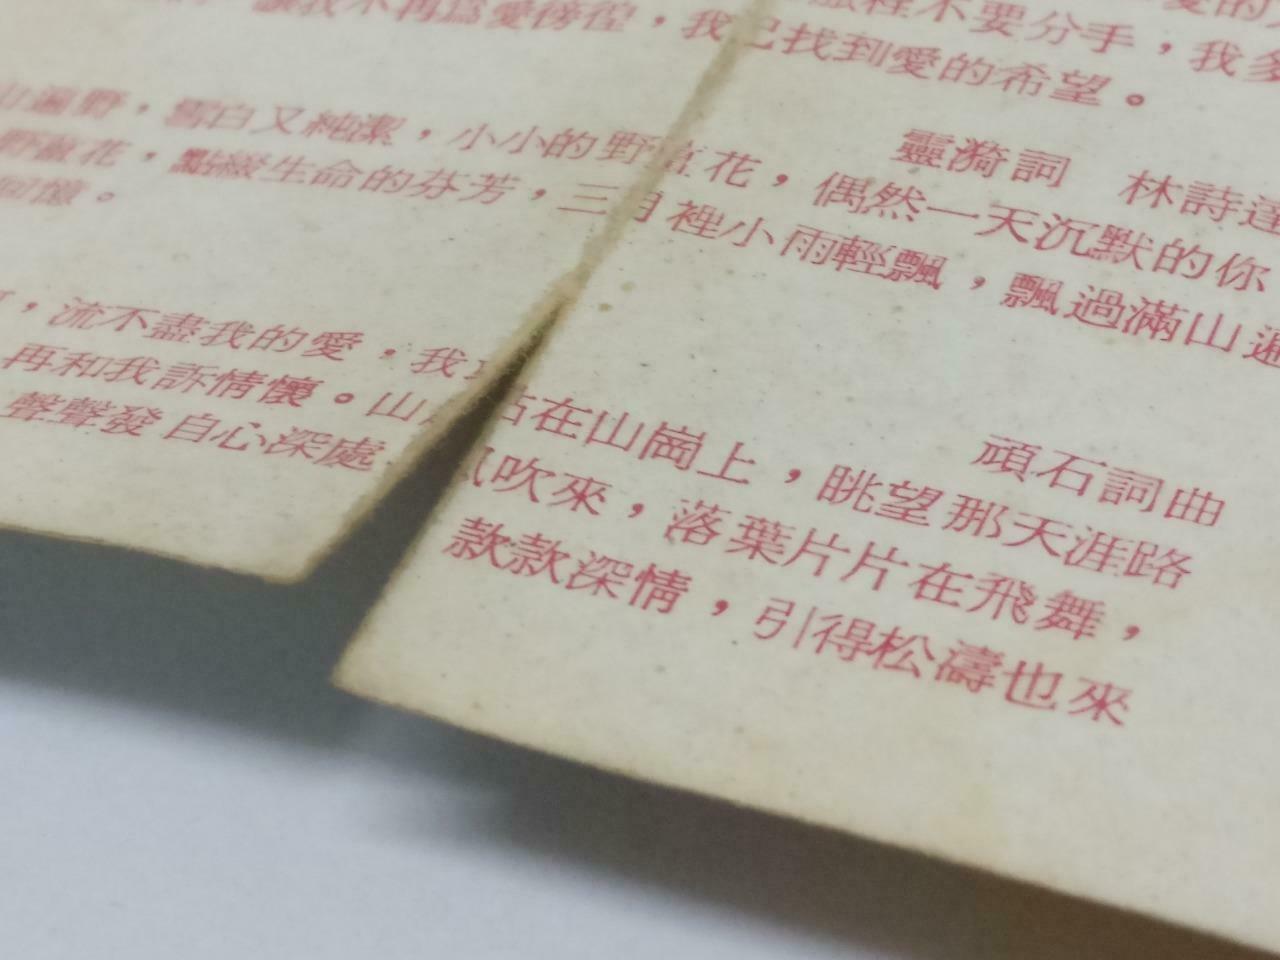 旅程不要分手，我多
讓我不再為愛徬徨，我已找到愛的希望。
靈漪詞 林詩達
山遍野，雪白又純潔，小小的野薑花，偶然一天沉默的你
野薑花，點綴生命的芬芳，三月裡小雨輕飄，飄過滿山遍
回憶。
頑石詞曲
，流不盡我的愛，我站在山崗上，眺望那天涯路
再和我訴情懷。山風吹來，落葉片片在飛舞，
聲聲發自心深處 款款深情，引得松濤也來